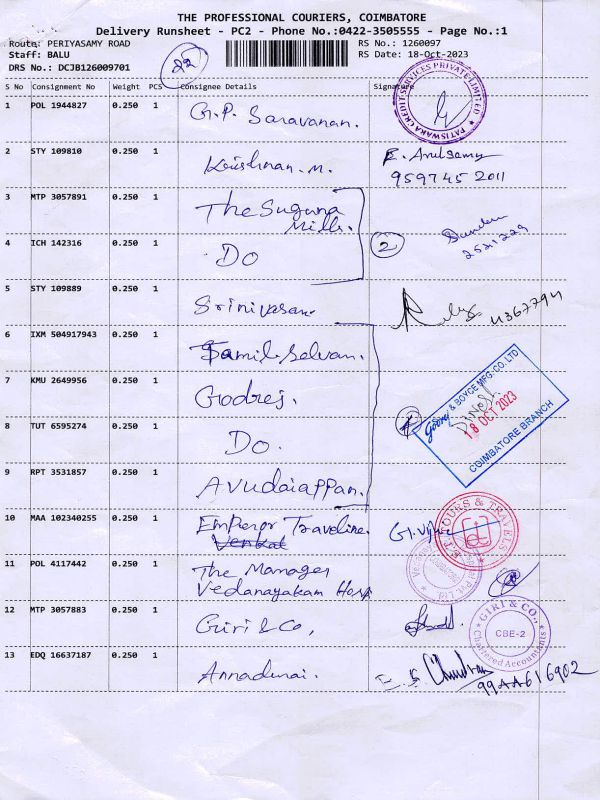 THE PROFESSIONAL COURIERS, COIMBATORE
Delivery Runsheet - PC2 - Phone No.:0422-3505555 - Page No.:1
Route: PERIYASAMY ROAD RS No.: 1260097
Staff: BALU RS Date: 18-Oct-2023
DRS No.: DCJB126009701
22
S No Consignment No Weight PCS Consignee Details Signature
1 POL 1944827 0.250 1 G.P. Saravanan.
PATISWARA CREDIT SERVICES PRIVATE LIMITED
2 STY 109810 0.250 1 Krishnan.M. E. Arulsamy
959745 2011
3 MTP 3057891 0.250 1 The Suguna
Mills.
2
4 ICH 142316 0.250 1 Do
2521229
5 STY 109889 0.250 1 Srinivasan.
6 IXM 504917943 0.250 1 Tamil Selvan.
7 KMU 2649956 0.250 1 Godrej.
Godrej & BOYCE MFG. CO. LTD
18 OCT 2023
COIMBATORE BRANCH
8 TUT 6595274 0.250 1 Do.
9 RPT 3531857 0.250 1 Avudaiappan.
10 MAA 102340255 0.250 1 Emperor Traveline.
Venkat
TOURS & TRAVELS
11 POL 4117442 0.250 1 The Manager
Vedanayakam Hosp
12 MTP 3057883 0.250 1 Giri & Co,
GIRI & CO.,
CBE-2
Chartered Accountants
13 EDQ 16637187 0.250 1 Annadurai.